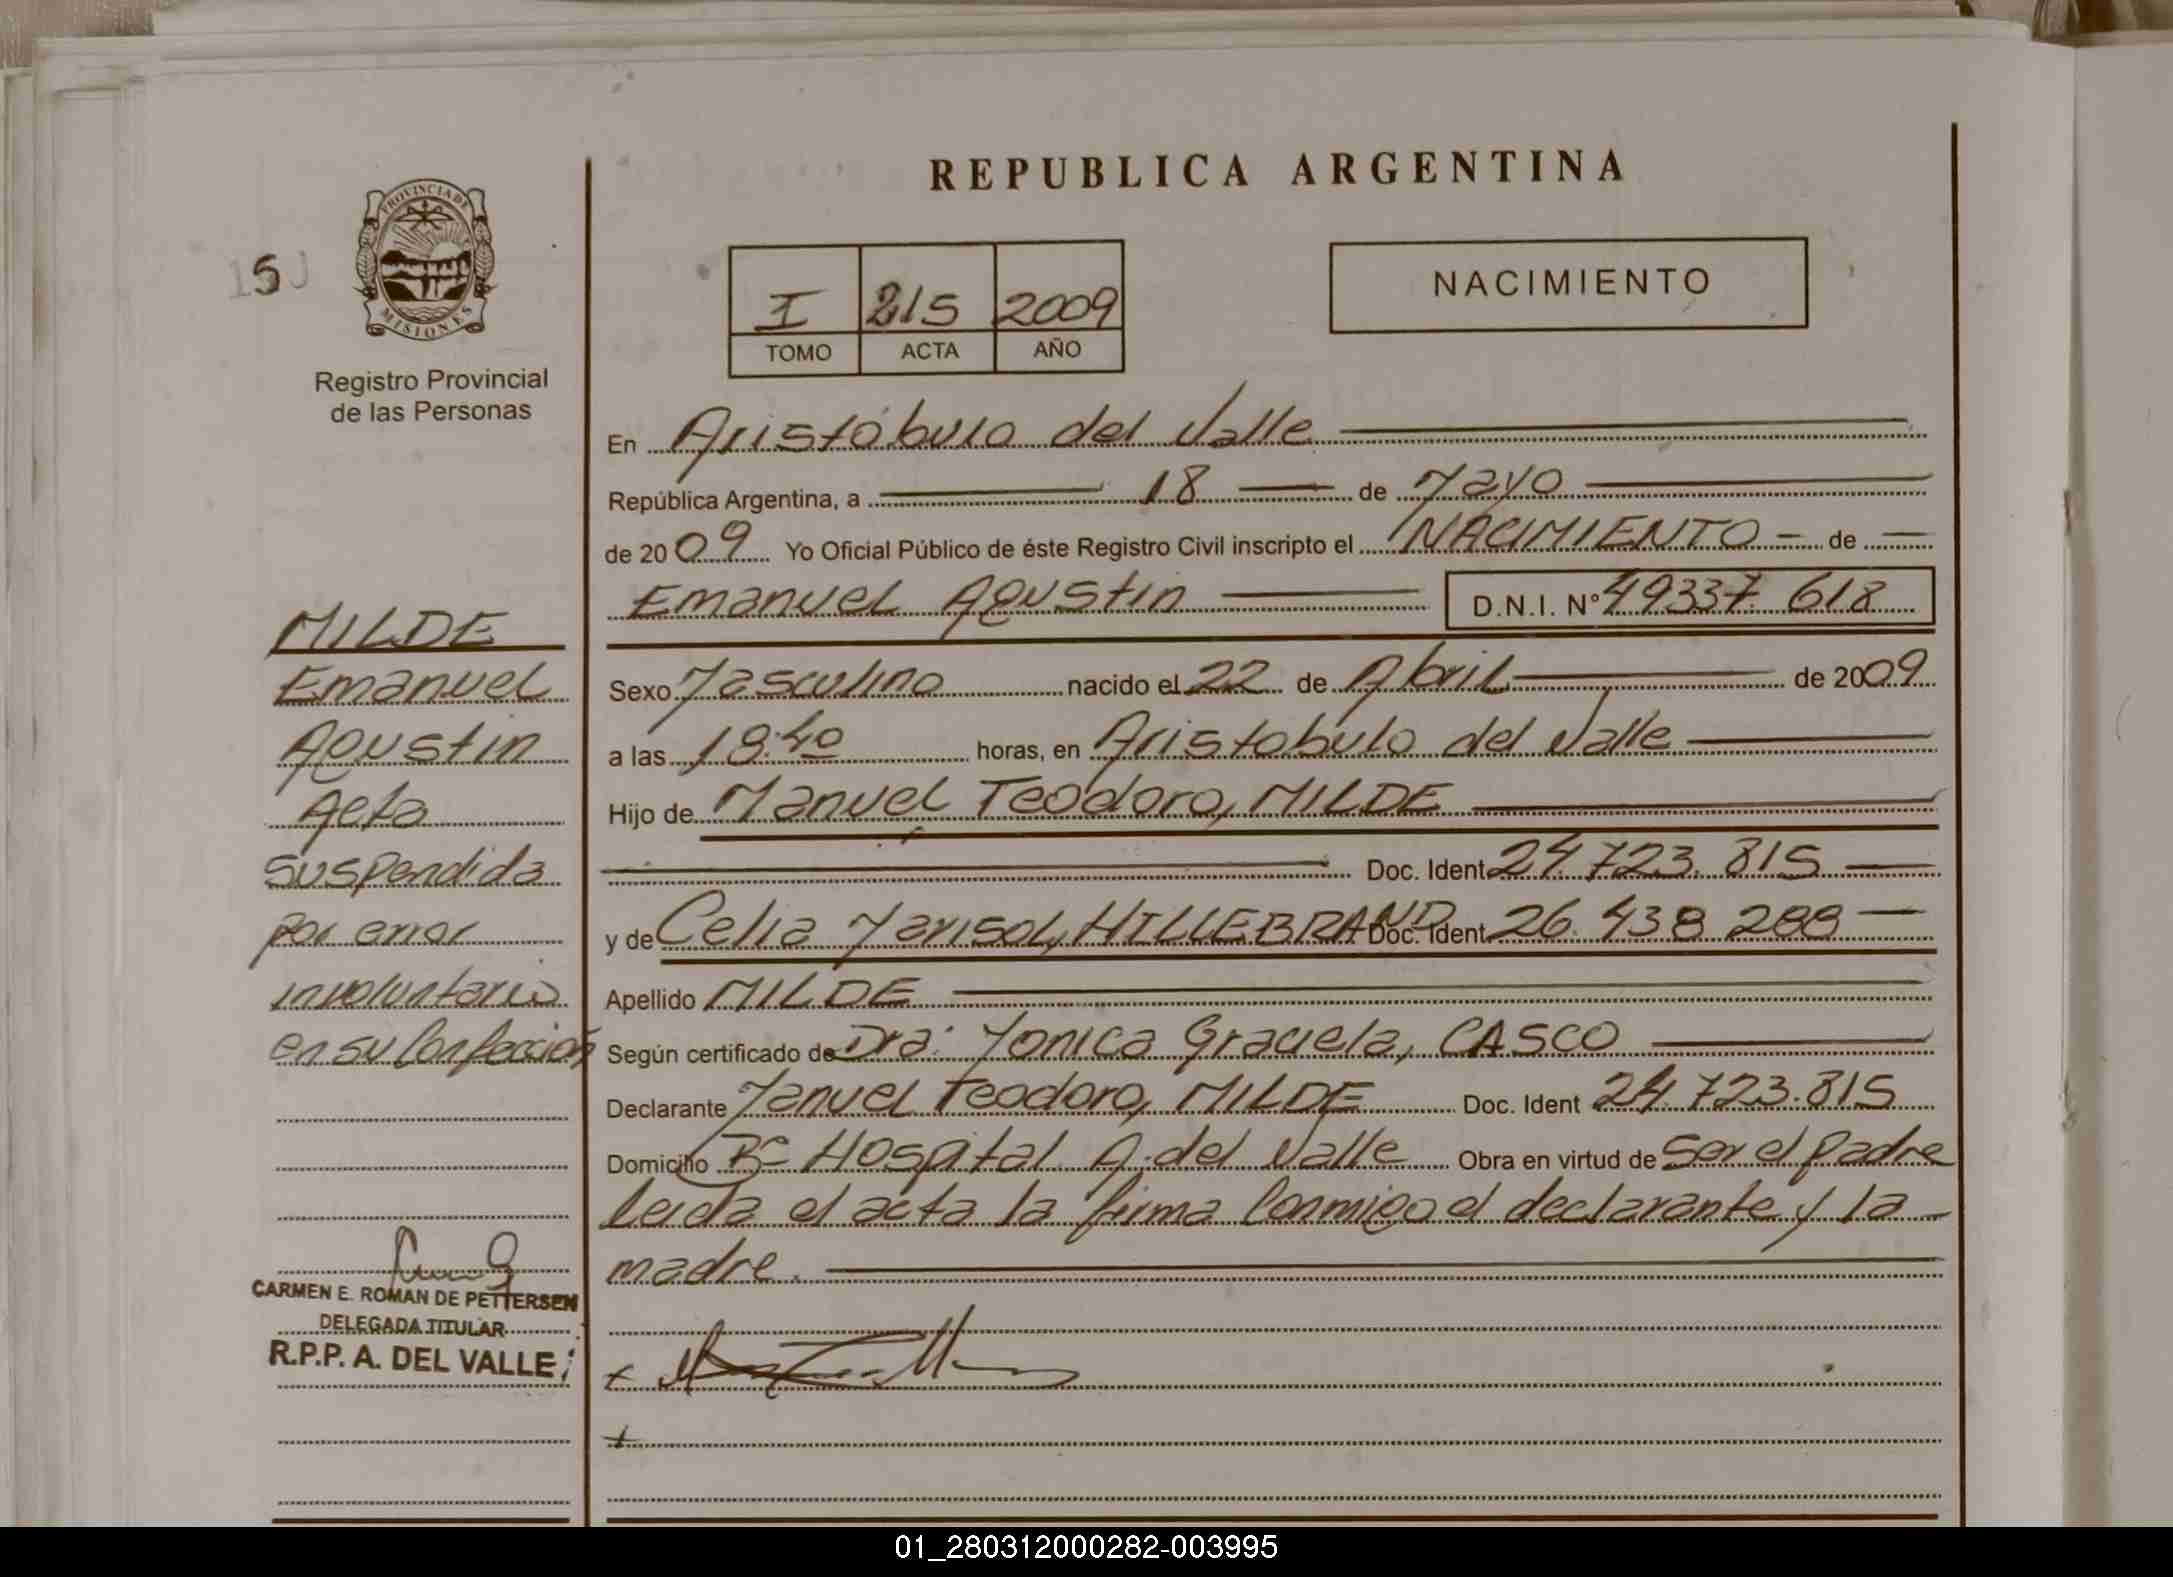 REPUBLICA ARGENTINA
PROVINCIA DE
MISIONES
Registro Provincial
de las Personas
NACIMIENTO
I 215 2009
TOMO ACTA AÑO
En Aristóbulo del Valle
República Argentina, a 18 de Mayo
de 2009 Yo Oficial Público de éste Registro Civil inscripto el NACIMIENTO - de
Emanuel Agustin D.N.I. Nº 49337.618
Sexo Masculino nacido el 22 de Abril de 2009
a las 18:40 horas, en Aristobulo del Valle
Hijo de Manuel Teodoro, MILDE
Doc. Ident 24.723.815
y de Celia Marisol, HILLEBRAND Doc. Ident 26.438 288
Apellido MILDE
Según certificado de Dra: Monica Graciela, CASCO
Declarante Manuel Teodoro, MILDE Doc. Ident 24.723.815
Domicilio Bº Hospital A. del Valle Obra en virtud de Ser el Padre
Leida el acta la firma Conmigo el declarante y la
madre.
MILDE
Emanuel
Agustin
Acta
suspendida
por error
involuntario
en su Confección
CARMEN E. ROMAN DE PETTERSEN
DELEGADA TITULAR
R.P.P. A. DEL VALLE
01_280312000282-003995